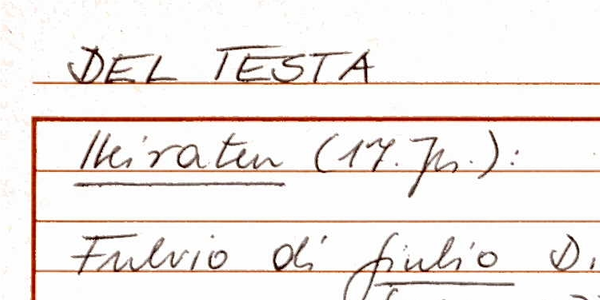 DEL TESTA
Heiraten (17. Jh.):
Fulvio di Giulio